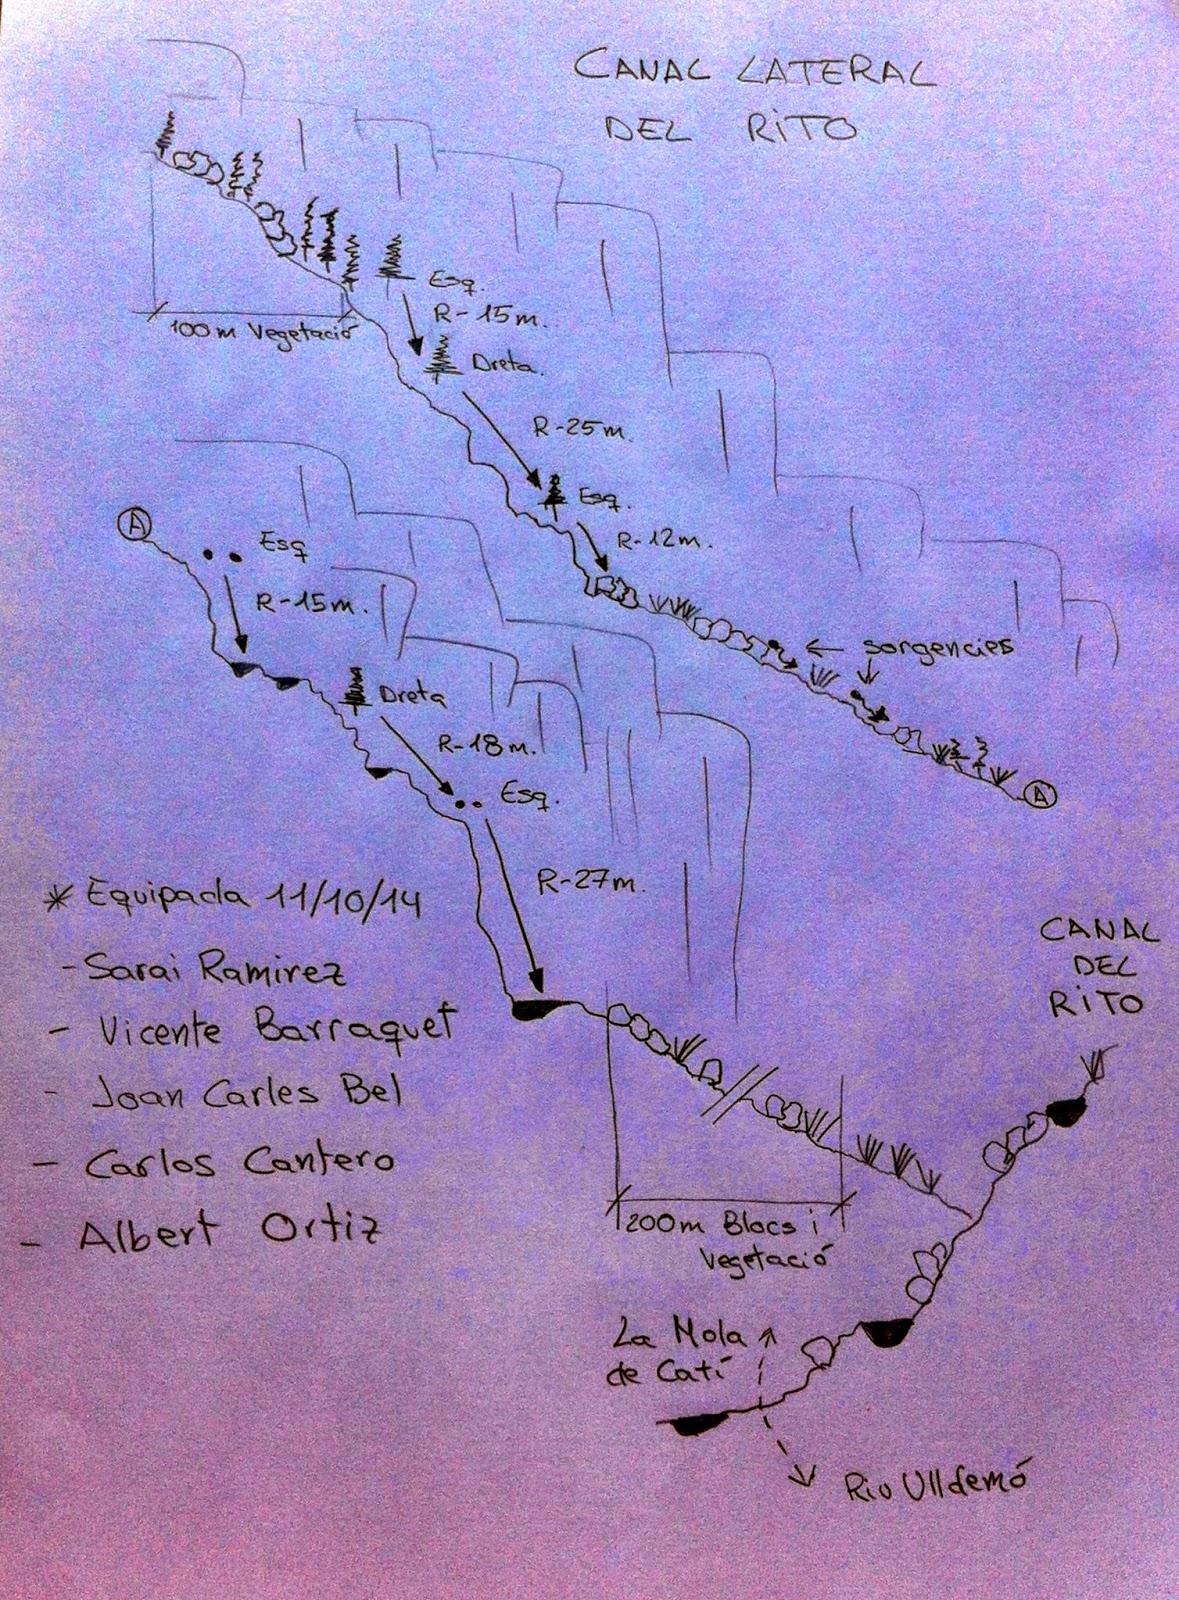 CANAL LATERAL
DEL RITO
Esq.
R-15m.
100m Vegetació
Dreta.
R-25m.
Esq.
R-12m.
← sorgencies
A
A
Esq
R-15m.
Dreta
R-18m.
Esq.
R-27m.
* Equipada 11/10/14
- Sarai Ramirez
- Vicente Barraquet
- Joan Carles Bel
- Carlos Cantero
- Albert Ortiz
CANAL
DEL
RITO
200m Blocs i
Vegetació
La Mola
de Catí
Riu Ulldemó